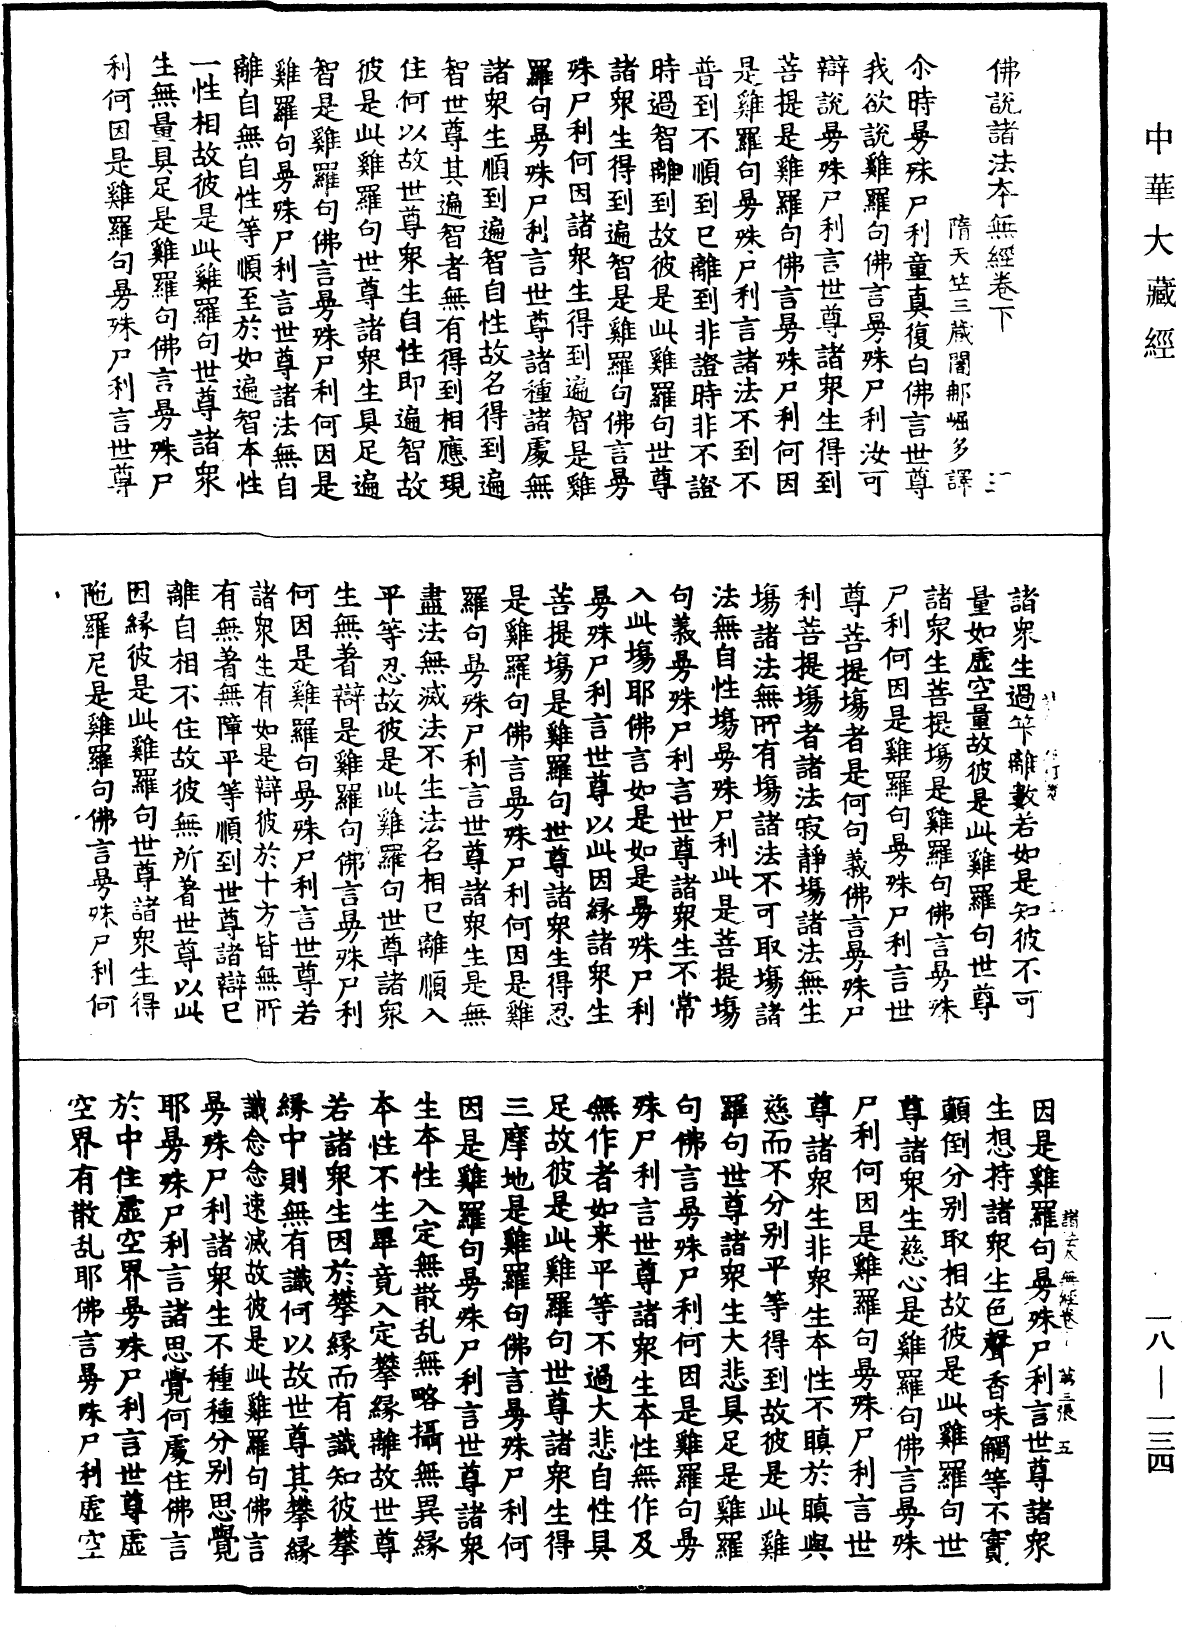 中華大藏經
佛說諸法本無經卷下
隋天竺三藏闍那崛多譯
尒時曼殊尸利童真復白佛言世尊
我欲說雞羅句佛言曼殊尸利汝可
辯說曼殊尸利言世尊諸衆生得到
菩提是雞羅句佛言曼殊尸利何因
是雞羅句曼殊尸利言諸法不到不
普到不順到已離到非證時非不證
時過智離到故彼是此雞羅句世尊
諸衆生得到遍智是雞羅句佛言曼
殊尸利何因諸衆生得到遍智是雞
羅句曼殊尸利言世尊諸種諸處無
諸衆生順到遍智自性故名得到遍
智世尊其遍智者無有得到相應現
住何以故世尊衆生自性即遍智故
彼是此雞羅句世尊諸衆生具足遍
智是雞羅句佛言曼殊尸利何因是
雞羅句曼殊尸利言世尊諸法無自
離自無自性等順至於如遍智本性
一性相故彼是此雞羅句世尊諸衆
生無量具足是雞羅句佛言曼殊尸
利何因是雞羅句曼殊尸利言世尊
諸衆生過筭離數若如是知彼不可
量如虛空量故彼是此雞羅句世尊
諸衆生菩提場是雞羅句佛言曼殊
尸利何因是雞羅句曼殊尸利言世
尊菩提場者是何句義佛言曼殊尸
利菩提場者諸法寂靜場諸法無生
場諸法無所有場諸法不可取場諸
法無自性場曼殊尸利此是菩提場
句義曼殊尸利言世尊諸衆生不常
入此場耶佛言如是如是曼殊尸利
曼殊尸利言世尊以此因緣諸衆生
菩提場是雞羅句世尊諸衆生得忍
是雞羅句佛言曼殊尸利何因是雞
羅句曼殊尸利言世尊諸衆生是無
盡法無滅法不生法名相已離順入
平等忍故彼是此雞羅句世尊諸衆
生無著辯是雞羅句佛言曼殊尸利
何因是雞羅句曼殊尸利言世尊若
諸衆生有如是辯彼於十方皆無所
有無著無障平等順到世尊諸辯已
離自相不住故彼無所著世尊以此
因緣彼是此雞羅句世尊諸衆生得
陁羅尼是雞羅句佛言曼殊尸利何
因是雞羅句曼殊尸利言世尊諸衆
生想持諸衆生色聲香味觸等不實
顛倒分別取相故彼是此雞羅句世
尊諸衆生慈心是雞羅句佛言曼殊
尸利何因是雞羅句曼殊尸利言世
尊諸衆生非衆生本性不瞋於瞋與
慈而不分別平等得到故彼是此雞
羅句世尊諸衆生大悲具足是雞羅
句佛言曼殊尸利何因是雞羅句曼
殊尸利言世尊諸衆生本性無作及
無作者如來平等不過大悲自性具
足故彼是此雞羅句世尊諸衆生得
三摩地是雞羅句佛言曼殊尸利何
因是雞羅句曼殊尸利言世尊諸衆
生本性入定無散乱無略攝無異緣
本性不生畢竟入定攀緣離故世尊
若諸衆生因於攀緣而有識知彼攀
緣中則無有識何以故世尊其攀緣
識念念速滅故彼是此雞羅句佛言
曼殊尸利諸衆生不種種分別思覺
耶曼殊尸利言諸思覺何處住佛言
於中住虛空界曼殊尸利言世尊虛
空界有散乱耶佛言曼殊尸利虛空
一八—一三四